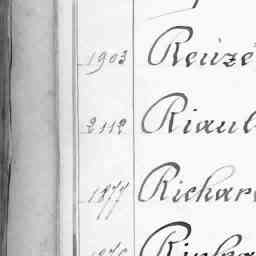 1903 Reuzé
2112 Riaul
1877 Richar